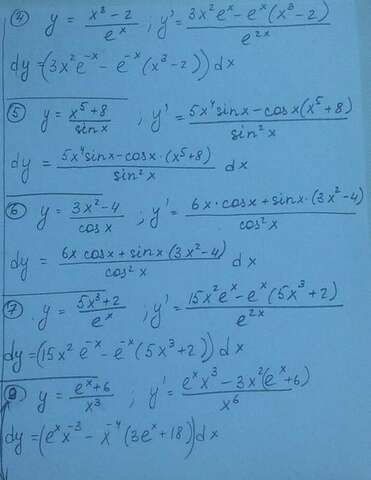 ④ y = (x³ − 2)/eˣ ; y' = (3x²eˣ − eˣ(x³ − 2))/e²ˣ
dy = (3x²e⁻ˣ − e⁻ˣ(x³ − 2)) dx
⑤ y = (x⁵ + 8)/sin x ; y' = (5x⁴ sin x − cos x (x⁵ + 8))/sin² x
dy = (5x⁴ sin x − cos x · (x⁵ + 8))/sin² x dx
⑥ y = (3x² − 4)/cos x ; y' = (6x · cos x + sin x · (3x² − 4))/cos² x
dy = (6x cos x + sin x (3x² − 4))/cos² x dx
⑦ y = (5x³ + 2)/eˣ ; y' = (15x²eˣ − eˣ(5x³ + 2))/e²ˣ
dy = (15x² e⁻ˣ − e⁻ˣ (5x³ + 2)) dx
⑧ y = (eˣ + 6)/x³ ; y' = (eˣx³ − 3x²(eˣ + 6))/x⁶
dy = (eˣx⁻³ − x⁻⁴(3eˣ + 18)) dx